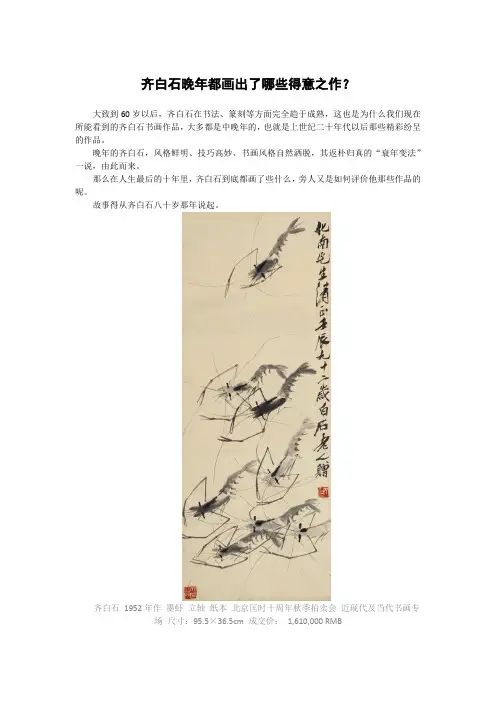 齐白石晚年都画出了哪些得意之作？
大致到60岁以后，齐白石在书法、篆刻等方面完全趋于成熟，这也是为什么我们现在
所能看到的齐白石书画作品，大多都是中晚年的，也就是上世纪二十年代以后那些精彩纷呈
的作品。
晚年的齐白石，风格鲜明、技巧高妙、书画风格自然洒脱，其返朴归真的“衰年变法”
一说，由此而来。
那么在人生最后的十年里，齐白石到底都画了些什么，旁人又是如何评价他那些作品的
呢。
故事得从齐白石八十岁那年说起。
化南先生清正壬辰九十二岁白石老人赠
齐白石 1952年作 墨虾 立轴 纸本 北京匡时十周年秋季拍卖会 近现代及当代书画专
场 尺寸：95.5×36.5cm 成交价： 1,610,000 RMB